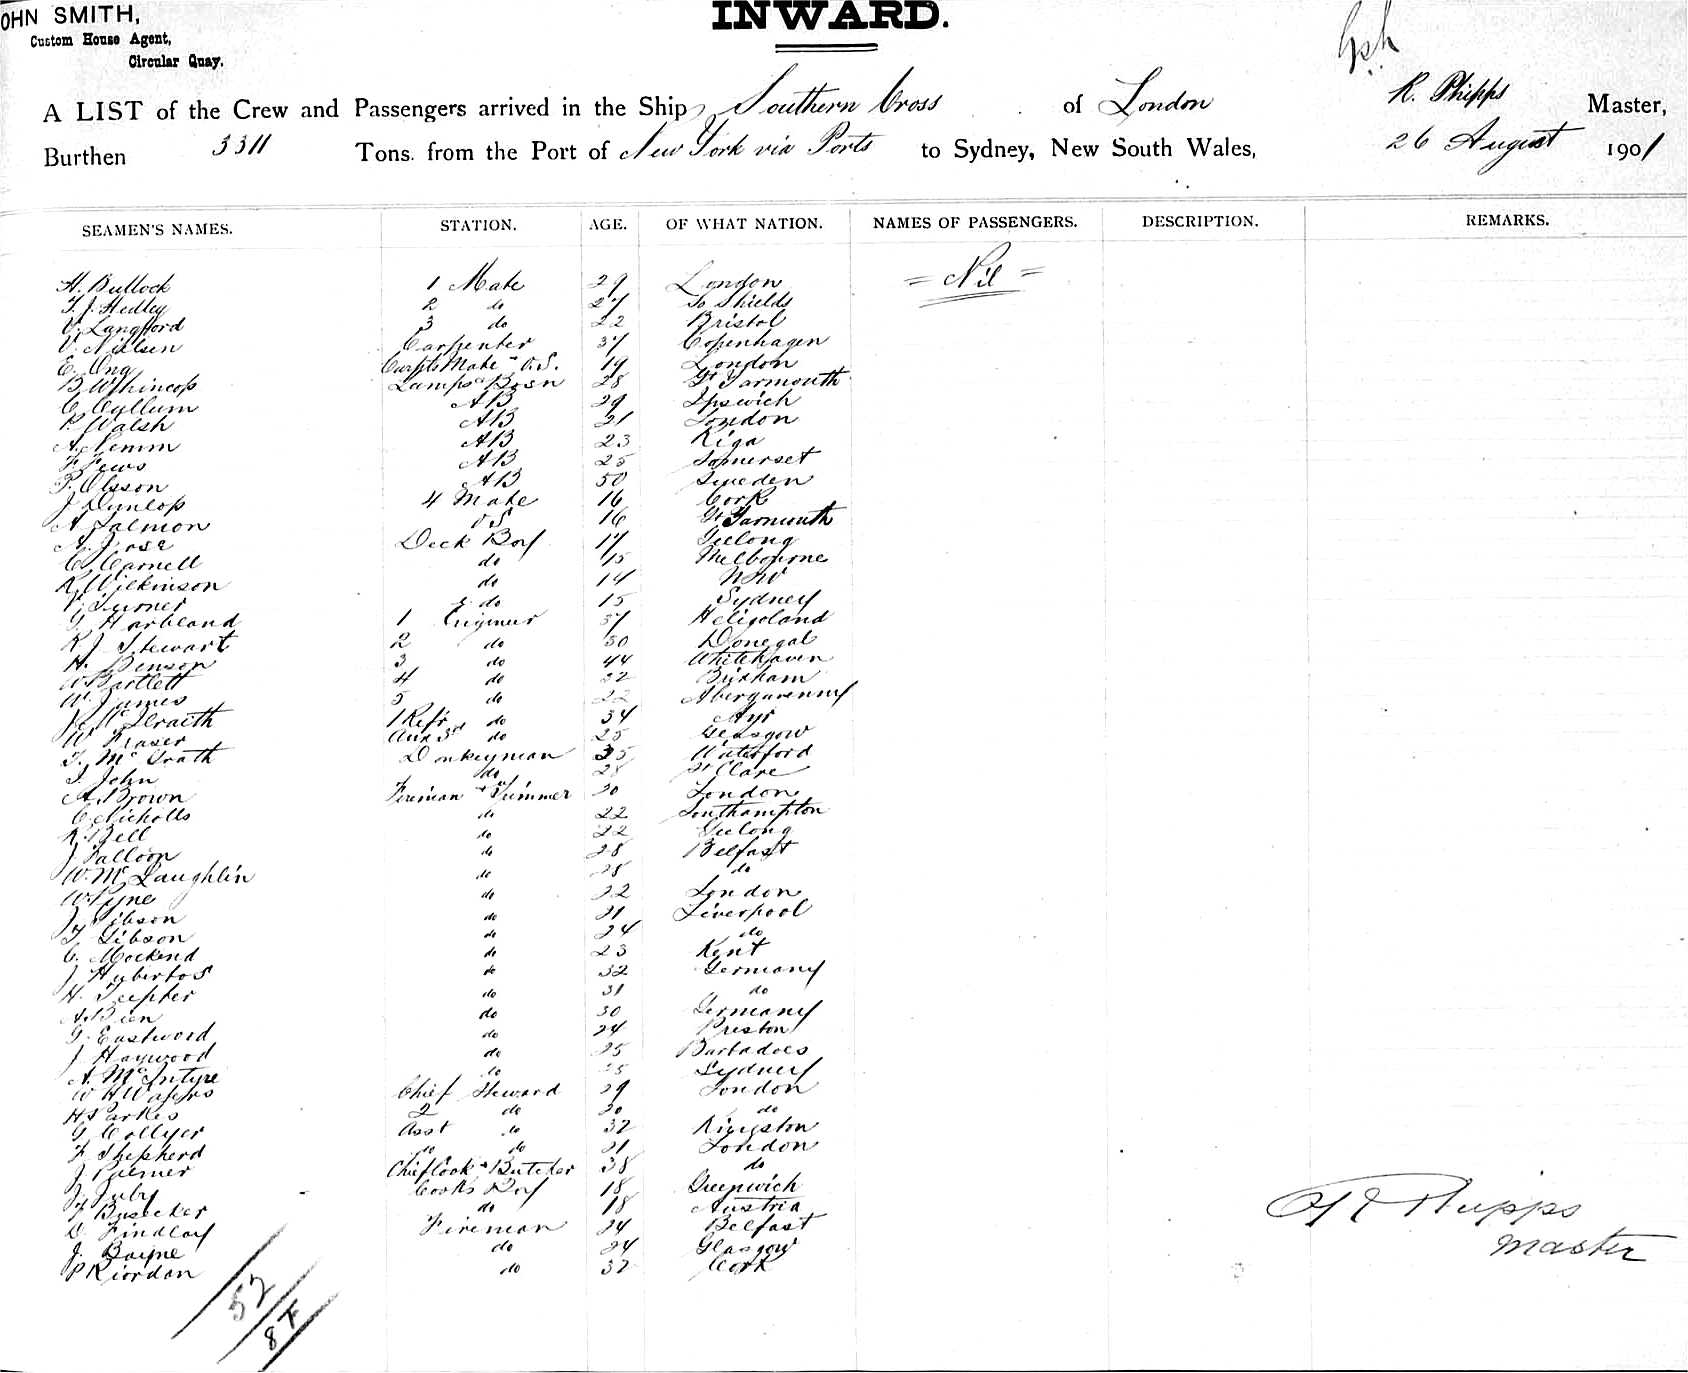 OHN SMITH,
Custom House Agent,
Circular Quay.
INWARD.
A LIST of the Crew and Passengers arrived in the Ship Southern Cross of London R. Phipps Master,
Burthen 3311 Tons. from the Port of New York via Ports to Sydney, New South Wales, 26 August 1901
SEAMEN'S NAMES. STATION. AGE. OF WHAT NATION. NAMES OF PASSENGERS. DESCRIPTION. REMARKS.
H. Bullock 1 Mate 29 London = Nil =
T. J. Hedley 2 do 27 So Shields
V. Langford 3 do 22 Bristol
V. Nielsen Carpenter 37 Copenhagen
E. Ong Carpts Mate & O.S. 19 London
B. Whincop Lamps & Bosn 28 Gt Yarmouth
C. Cyllum AB 29 Ipswich
P. Walsh AB 21 London
A. Nemm AB 23 Riga
F. Fews AB 25 Somerset
P. Olsson AB 50 Sweden
J Dunlop 4 Mate 16 Cork
A. Salmon OS 16 Gt Yarmouth
A. Deck Boy 17 Geelong
C. Carnell do 15 Melbourne
R. Wilkinson do 14 NSW
V. Turner do 15 Sydney
G. Harbland 1 Engineer 37 Heligoland
R J Stewart 2 do 30 Donegal
H. Benson 3 do 44 Whitehaven
W Bartlett 4 do 32 Brixham
W. James 5 do 22 Abergavenny
McIlraith 1 Refr do 34 Ayr
W Fraser Aux 3rd do 25 Glasgow
T. McGrath Donkeyman 35 Waterford
T. John do 28 St Clare
A. Brown Fireman & Trimmer 20 London
C. Nicholls do 22 Southampton
R. Bell do 22 Geelong
J Falloon do 28 Belfast
W. McLaughlin do 28 do
W. Pyne do 22 London
J Gibson do 21 Liverpool
T Gibson do 24 do
C. Mockend do 23 Kent
J Hubertos do 32 Germany
H. Teepker do 31 do
A. Bien do 30 Germany
G. Eastwood do 24 Preston
J Haywood do 25 Barbadoes
A. McIntyre do 25 Sydney
W H Waters Chief Steward 29 London
H Parkes 2 do 20 do
G Collyer Asst do 32 Kingston
F Shepherd do do 21 London
J Palmer Chief Cook & Butcher 38 do
J Juby Cooks Boy 18 Greenwich
F Busecker do 18 Austria
D Findlay Fireman 24 Belfast
J. Bayne do 24 Glasgow
P Riordan do 32 Cork
Phipps
Master
52
84